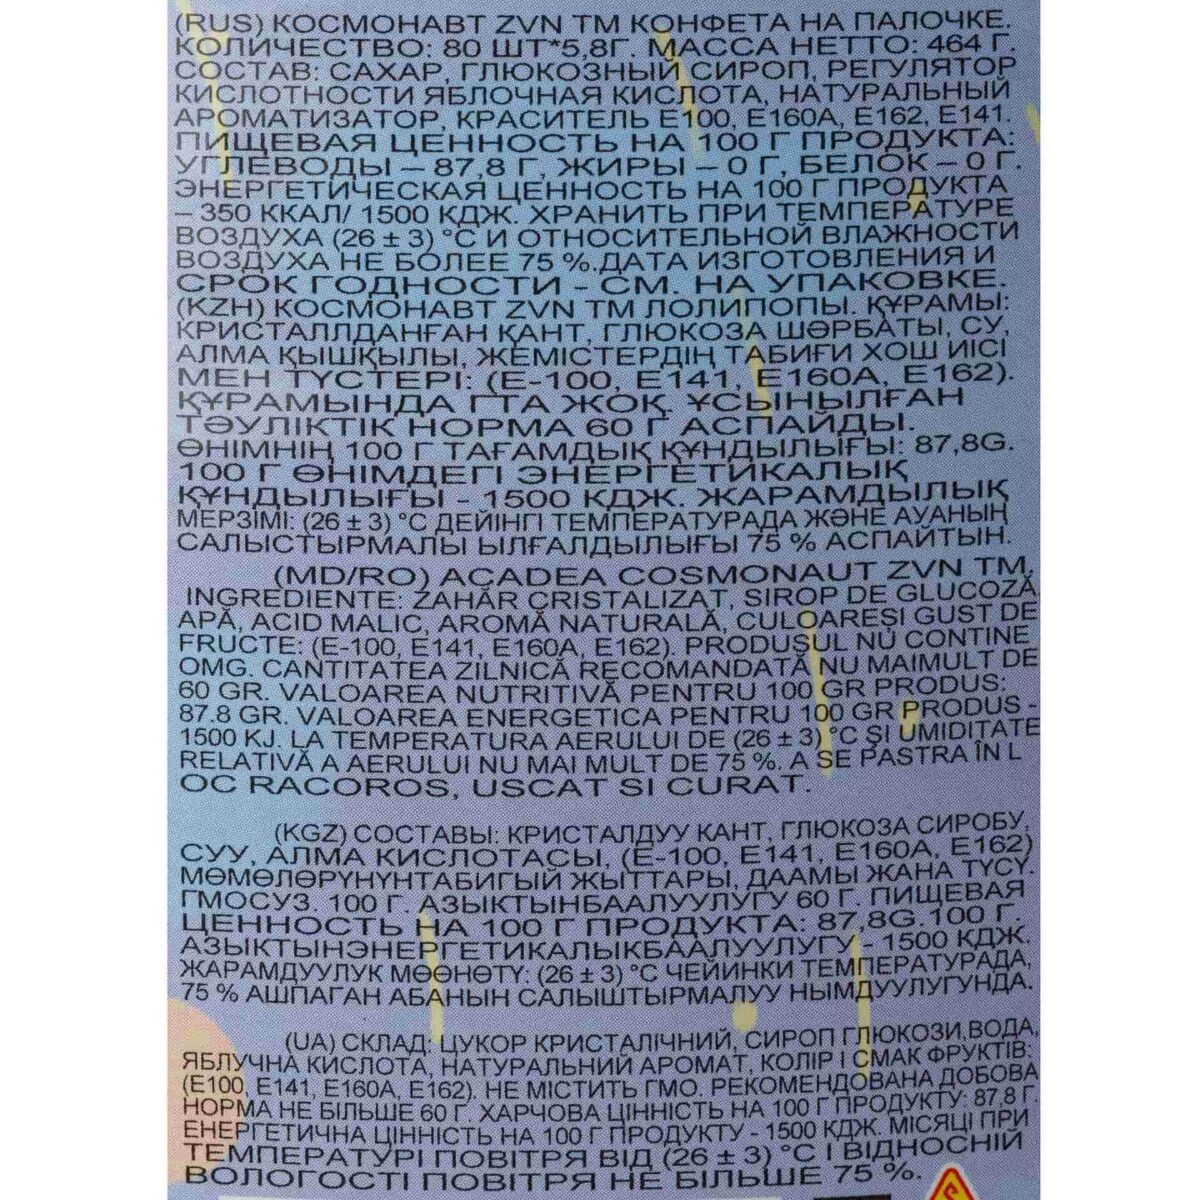 (RUS) КОСМОНАВТ ZVN TM КОНФЕТА НА ПАЛОЧКЕ.
КОЛИЧЕСТВО: 80 ШТ*5,8Г. МАССА НЕТТО: 464 Г.
СОСТАВ: САХАР, ГЛЮКОЗНЫЙ СИРОП, РЕГУЛЯТОР
КИСЛОТНОСТИ ЯБЛОЧНАЯ КИСЛОТА, НАТУРАЛЬНЫЙ
АРОМАТИЗАТОР, КРАСИТЕЛЬ E100, E160A, E162, E141.
ПИЩЕВАЯ ЦЕННОСТЬ НА 100 Г ПРОДУКТА:
УГЛЕВОДЫ – 87,8 Г, ЖИРЫ – 0 Г, БЕЛОК – 0 Г.
ЭНЕРГЕТИЧЕСКАЯ ЦЕННОСТЬ НА 100 Г ПРОДУКТА
– 350 ККАЛ/ 1500 КДЖ. ХРАНИТЬ ПРИ ТЕМПЕРАТУРЕ
ВОЗДУХА (26 ± 3) °C И ОТНОСИТЕЛЬНОЙ ВЛАЖНОСТИ
ВОЗДУХА НЕ БОЛЕЕ 75 %.ДАТА ИЗГОТОВЛЕНИЯ И
СРОК ГОДНОСТИ - СМ. НА УПАКОВКЕ.
(KZH) КОСМОНАВТ ZVN TM ЛОЛИПОПЫ. ҚҰРАМЫ:
КРИСТАЛЛДАНҒАН ҚАНТ, ГЛЮКОЗА ШӘРБАТЫ, СУ,
АЛМА ҚЫШҚЫЛЫ, ЖЕМІСТЕРДІҢ ТАБИҒИ ХОШ ИІСІ
МЕН ТҮСТЕРІ: (E-100, E141, E160A, E162).
ҚҰРАМЫНДА ГТА ЖОҚ. ҰСЫНЫЛҒАН
ТӘУЛІКТІК НОРМА 60 Г АСПАЙДЫ.
ӨНІМНІҢ 100 Г ТАҒАМДЫҚ ҚҰНДЫЛЫҒЫ: 87,8G.
100 Г ӨНІМДЕГІ ЭНЕРГЕТИКАЛЫҚ
ҚҰНДЫЛЫҒЫ - 1500 КДЖ. ЖАРАМДЫЛЫҚ
МЕРЗІМІ: (26 ± 3) °C ДЕЙІНГІ ТЕМПЕРАТУРАДА ЖӘНЕ АУАНЫҢ
САЛЫСТЫРМАЛЫ ЫЛҒАЛДЫЛЫҒЫ 75 % АСПАЙТЫН.
(MD/RO) ACADEA COSMONAUT ZVN TM.
INGREDIENTE: ZAHĂR CRISTALIZAT, SIROP DE GLUCOZĂ,
APĂ, ACID MALIC, AROMĂ NATURALĂ, CULOAREȘI GUST DE
FRUCTE: (E-100, E141, E160A, E162). PRODUSUL NU CONTINE
OMG. CANTITATEA ZILNICĂ RECOMANDATĂ NU MAIMULT DE
60 GR. VALOAREA NUTRITIVĂ PENTRU 100 GR PRODUS:
87.8 GR. VALOAREA ENERGETICA PENTRU 100 GR PRODUS -
1500 KJ. LA TEMPERATURA AERULUI DE (26 ± 3) °C ȘI UMIDITATE
RELATIVĂ A AERULUI NU MAI MULT DE 75 %. A SE PASTRA ÎN L
OC RACOROS, USCAT SI CURAT.
(KGZ) СОСТАВЫ: КРИСТАЛДУУ КАНТ, ГЛЮКОЗА СИРОБУ,
СУУ, АЛМА КИСЛОТАСЫ, (E-100, E141, E160A, E162)
МӨМӨЛӨРҮНҮНТАБИГЫЙ ЖЫТТАРЫ, ДААМЫ ЖАНА ТҮСҮ.
ГМОСУЗ. 100 Г. АЗЫКТЫНБААЛУУЛУГУ 60 Г. ПИЩЕВАЯ
ЦЕННОСТЬ НА 100 Г ПРОДУКТА: 87,8G.100 Г.
АЗЫКТЫНЭНЕРГЕТИКАЛЫКБААЛУУЛУГУ - 1500 КДЖ.
ЖАРАМДУУЛУК МӨӨНӨТҮ: (26 ± 3) °C ЧЕЙИНКИ ТЕМПЕРАТУРАДА,
75 % АШПАГАН АБАНЫН САЛЫШТЫРМАЛУУ НЫМДУУЛУГУНДА.
(UA) СКЛАД: ЦУКОР КРИСТАЛІЧНИЙ, СИРОП ГЛЮКОЗИ,ВОДА,
ЯБЛУЧНА КИСЛОТА, НАТУРАЛЬНИЙ АРОМАТ, КОЛІР І СМАК ФРУКТІВ:
(E100, E141, E160A, E162). НЕ МІСТИТЬ ГМО. РЕКОМЕНДОВАНА ДОБОВА
НОРМА НЕ БІЛЬШЕ 60 Г. ХАРЧОВА ЦІННІСТЬ НА 100 Г ПРОДУКТУ: 87,8 Г
ЕНЕРГЕТИЧНА ЦІННІСТЬ НА 100 Г ПРОДУКТУ - 1500 КДЖ. МІСЯЦІ ПРИ
ТЕМПЕРАТУРІ ПОВІТРЯ ВІД (26 ± 3) °C І ВІДНОСНІЙ
ВОЛОГОСТІ ПОВІТРЯ НЕ БІЛЬШЕ 75 %.